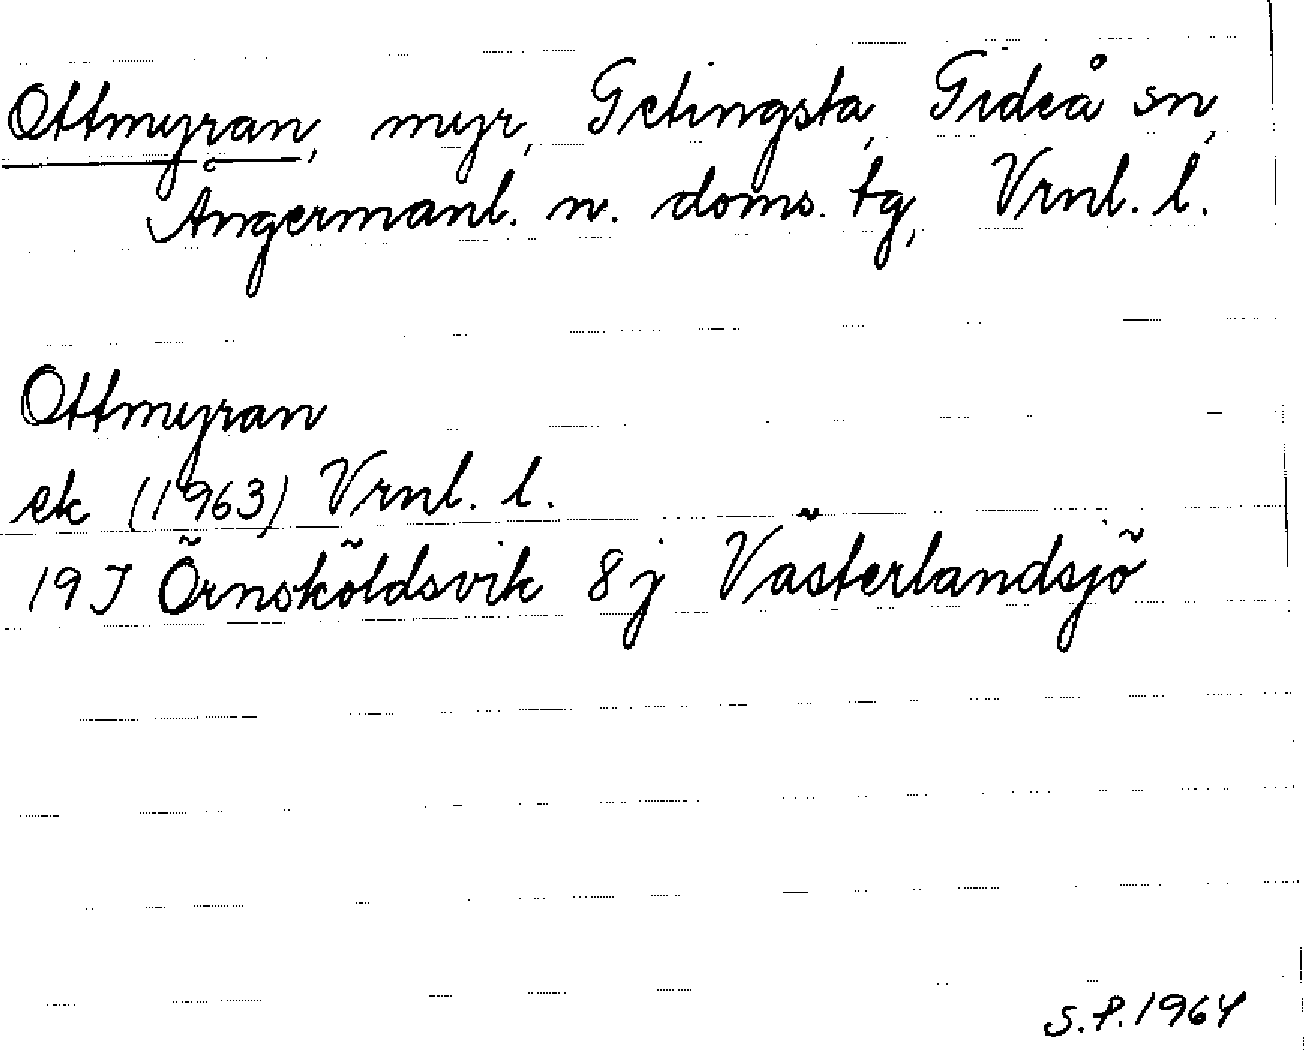 Ottmyran, myr, Getingsta, Gideå sn,
Ångermanl. n. doms. tg, Vrnl. l.
Ottmyran
ek (1963) Vrnl. l.
19J Örnsköldsvik 8j Västerlandsjö
S.P. 1964